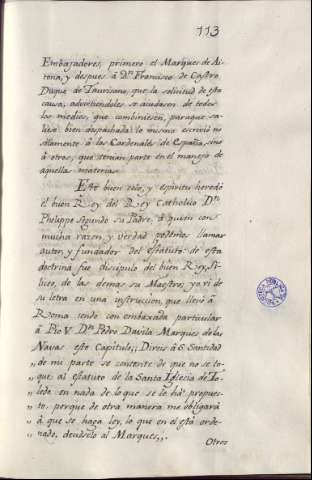 113
Embajadores, primero el Marques de Ai-
tona, y despues á Dn. Francisco de Castro
Duque de Taurisano, que la solicitud de esta
causa, advirtiendoles se aiudasen de todos
los medios, que combiniesen, paraque sa-
liese bien despachada lo mismo escrivió no
solamente á los Cardenales de España, sino
á otros, que tenian parte en el manejo de
aquella materia.
Este buen celo, y espiritu heredó
el buen Rey del Rey Catholico Dn.
Phelippe segundo su Padre, á quien con
mucha razon, y verdad podemos llamar
autor, y fundador del estatuto de esta
doctrina fue discipulo del buen Rey, Si-
liceo, de las demas su Maestro, ya vi de
su letra en una instruccion, que llevó á
Roma iendo con embaxada particular
á Pio V. Dn. Pedro Davila Marques de las
Navas este Capitulo,, Direis á S. Santidad
,, de mi parte se contente de que no se to-
,, que al estatuto de la Santa Iglesia de To-
,, ledo en nada de lo que se le há propues-
,, to, porque de otra manera me obligará
,, á que se haga ley, lo que en el está orde-
,, nado, deudrélo al Marques,,.
Otros